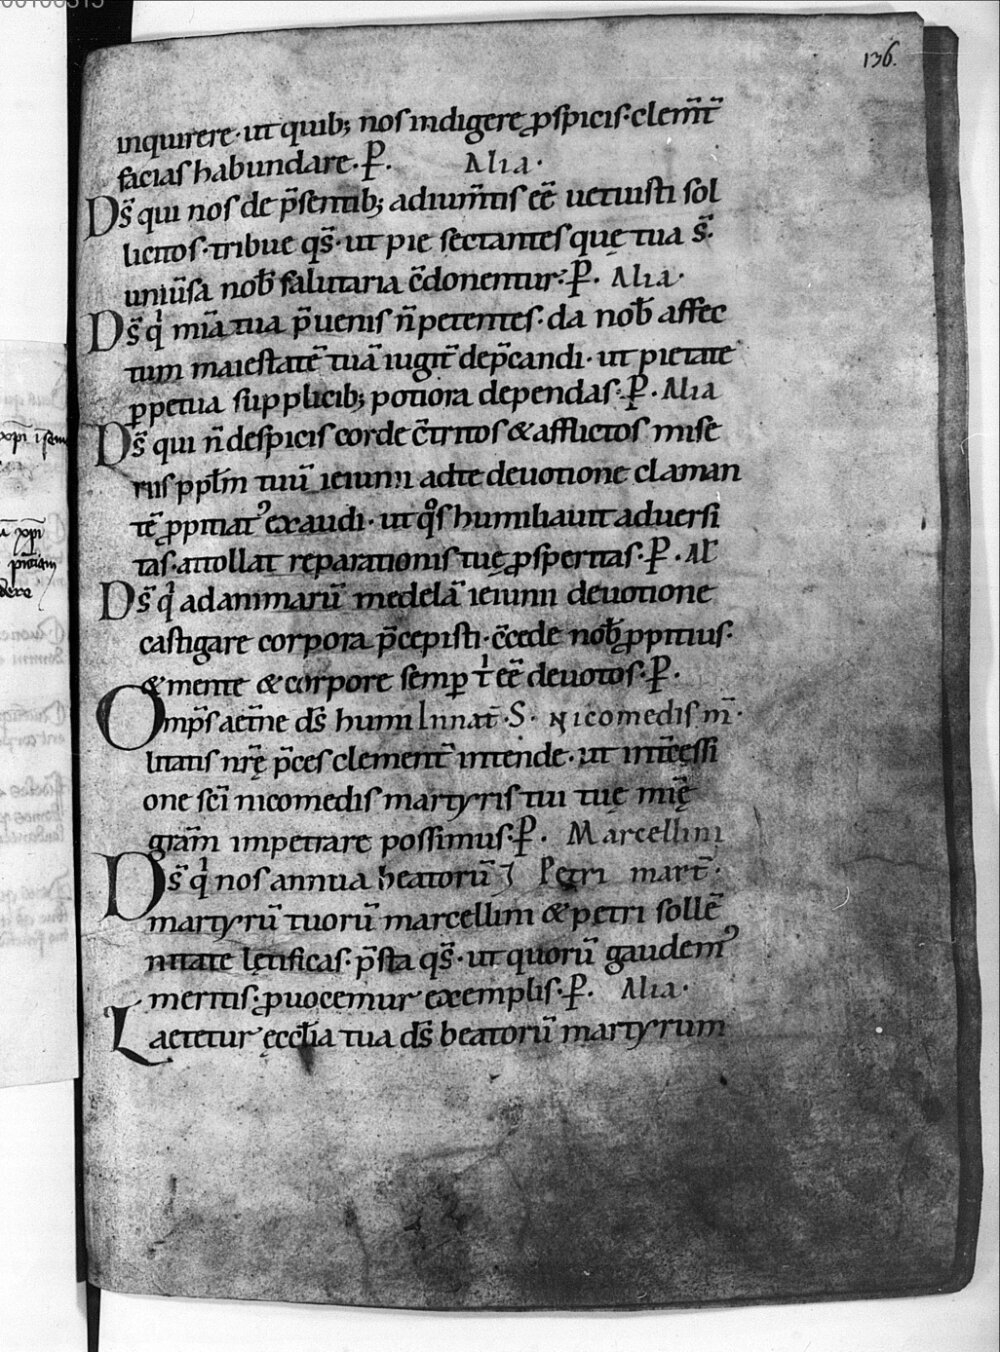 136.
inquirere· ut quib; nos indigere ꝓspicis· clem̄t̄
facias habundare· P̄. Alia·
Ds̄ qui nos de p̄sentib; adium̄tis eē uetuisti sol
licitos· tribue qs̄· ut pie sectantes quę tua s̄·
uniūsa nob̄ salutaria c̄donentur· P̄. Alia·
Ds̄ qͥ mīa tua p̄uenis n̄ petentes· da nob̄ affec
tum maiestatē tuā iugit̄ dep̄candi· ut pietate
ꝑpetua supplicib; potiora dependas· P̄. Alia
Ds̄ qui n̄ despicis corde c̄tritos & afflictos mise
riis ppl̄m tuū ieiunii ad te deuotione claman
tē ꝓpitiatꝰ exaudi· ut qͦs humiliauit aduersi
tas· attollat reparationis tuę ꝓsperitas· P̄. Al̄
Ds̄ qͥ ad animarū medelā ieiunii deuotione
castigare corpora p̄cepisti· c̄cede nob̄ ꝓpitius·
& mente & corpore semꝑ tͥ eē deuotos· P̄.
Omp̄s aet̄ne ds̄ humi In nat̄ S· Nicomedis m̄·
litatis nr̄ę p̄ces clement̄ intende· ut int̄cessi
one sc̄i nicomedis martyris tui tuę mīę
grām impetrare possimus· P̄. Marcellini
Ds̄ qͥ nos annua beatorū ⁊ Petri mart̄·
martyrū tuorū marcellini & petri sollē
nitate lętificas· p̄sta qs̄· ut quorū gaudemꝰ
meritis· ꝓuocemur exemplis· P̄. Alia·
Laetetur ęcclīa tua ds̄ beatorū martyrum